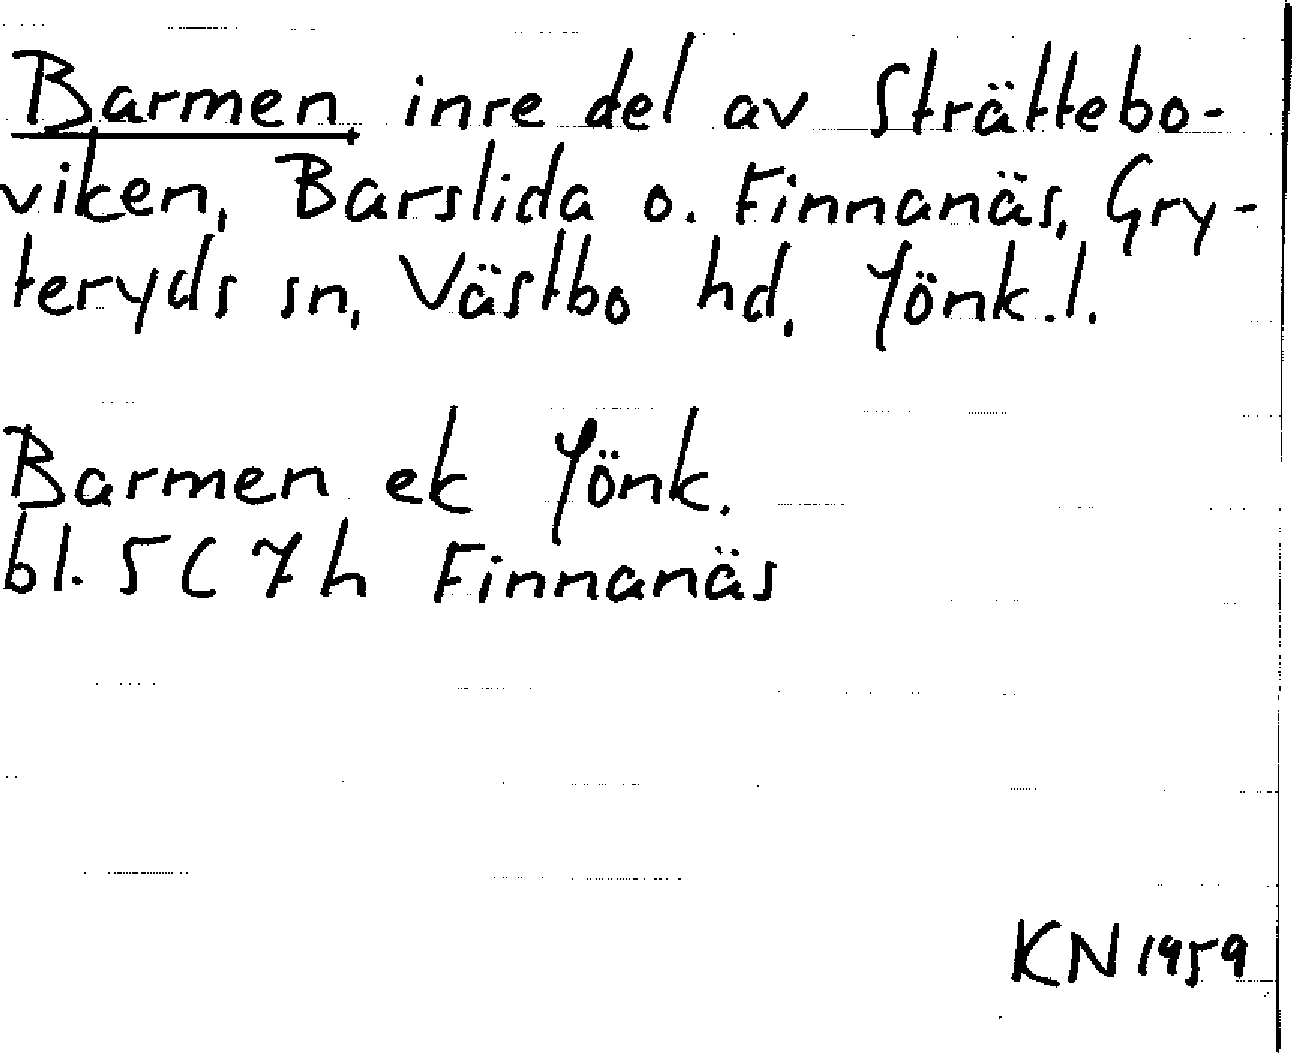 Barmen, inre del av Strättebo-
viken, Barslida o. Finnanäs, Gry-
teryds sn, Västbo hd, Jönk.l.
Barmen ek Jönk.
bl. 5C 7h Finnanäs
KN 1959